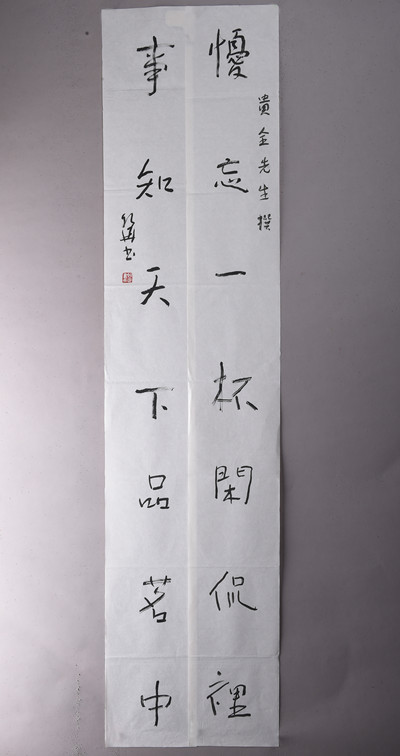 懮忘一杯閑侃裡
貴全先生撰
事知天下品茗中